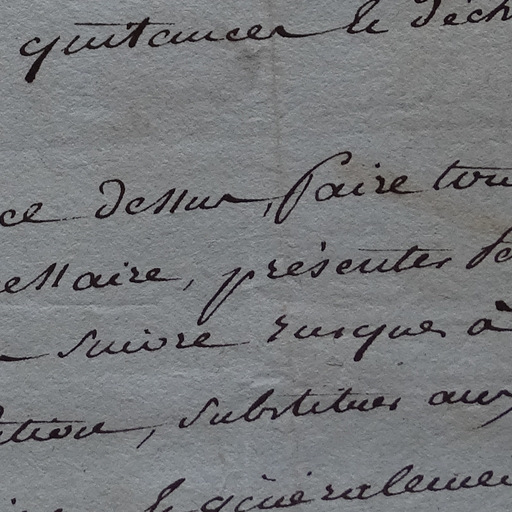 quittances & déch
ce dessus, faire tou
essaire, présenter se
suivre jusques à
ition, substituer aux
& généralemen